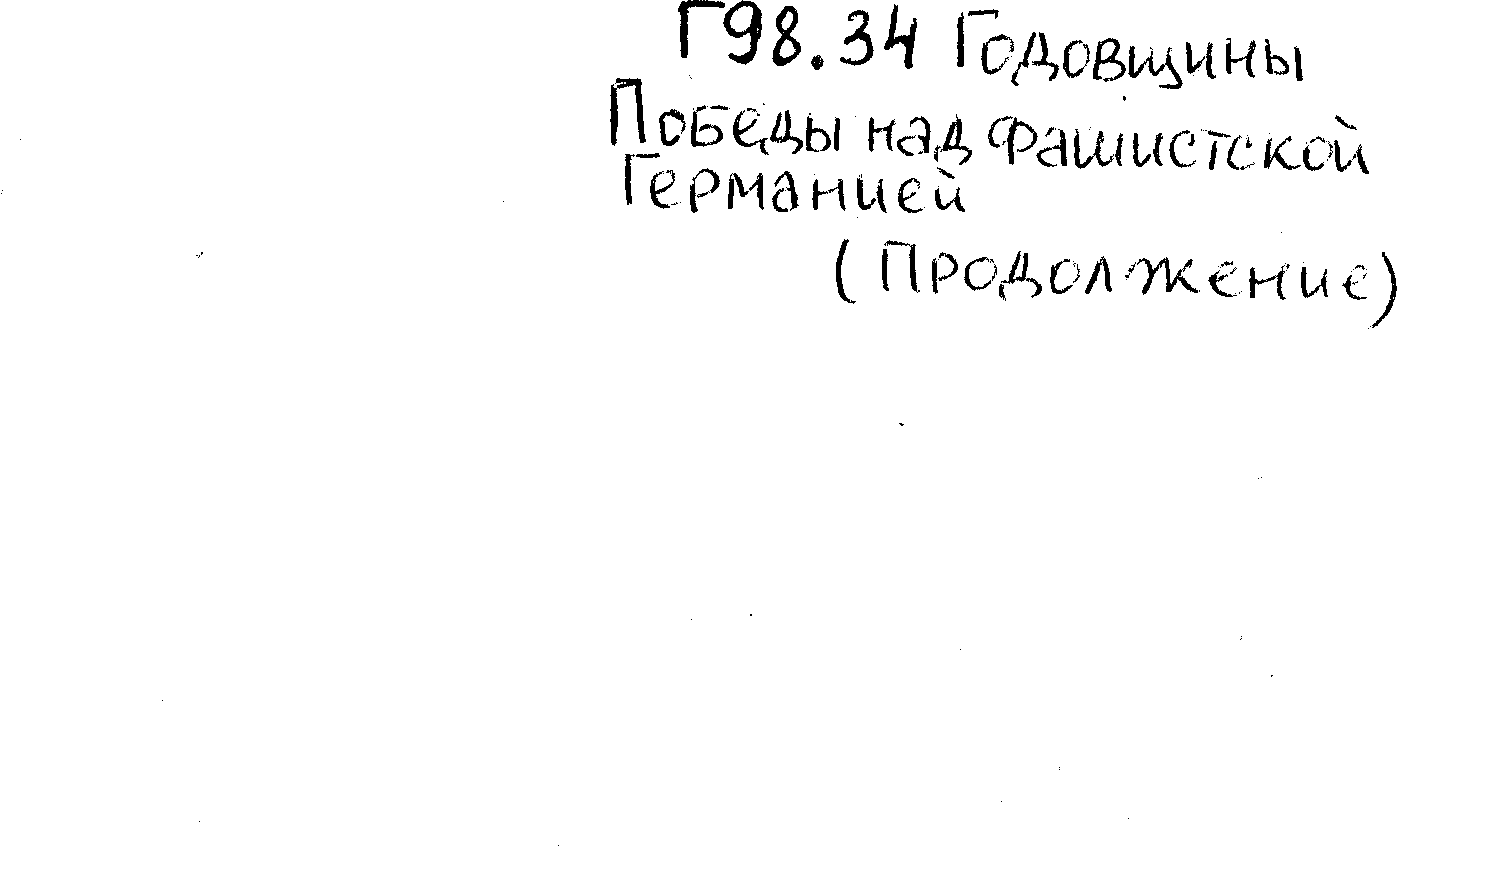 Г98.34 Годовщины
Победы над Фашистской
Германией
(Продолжение)